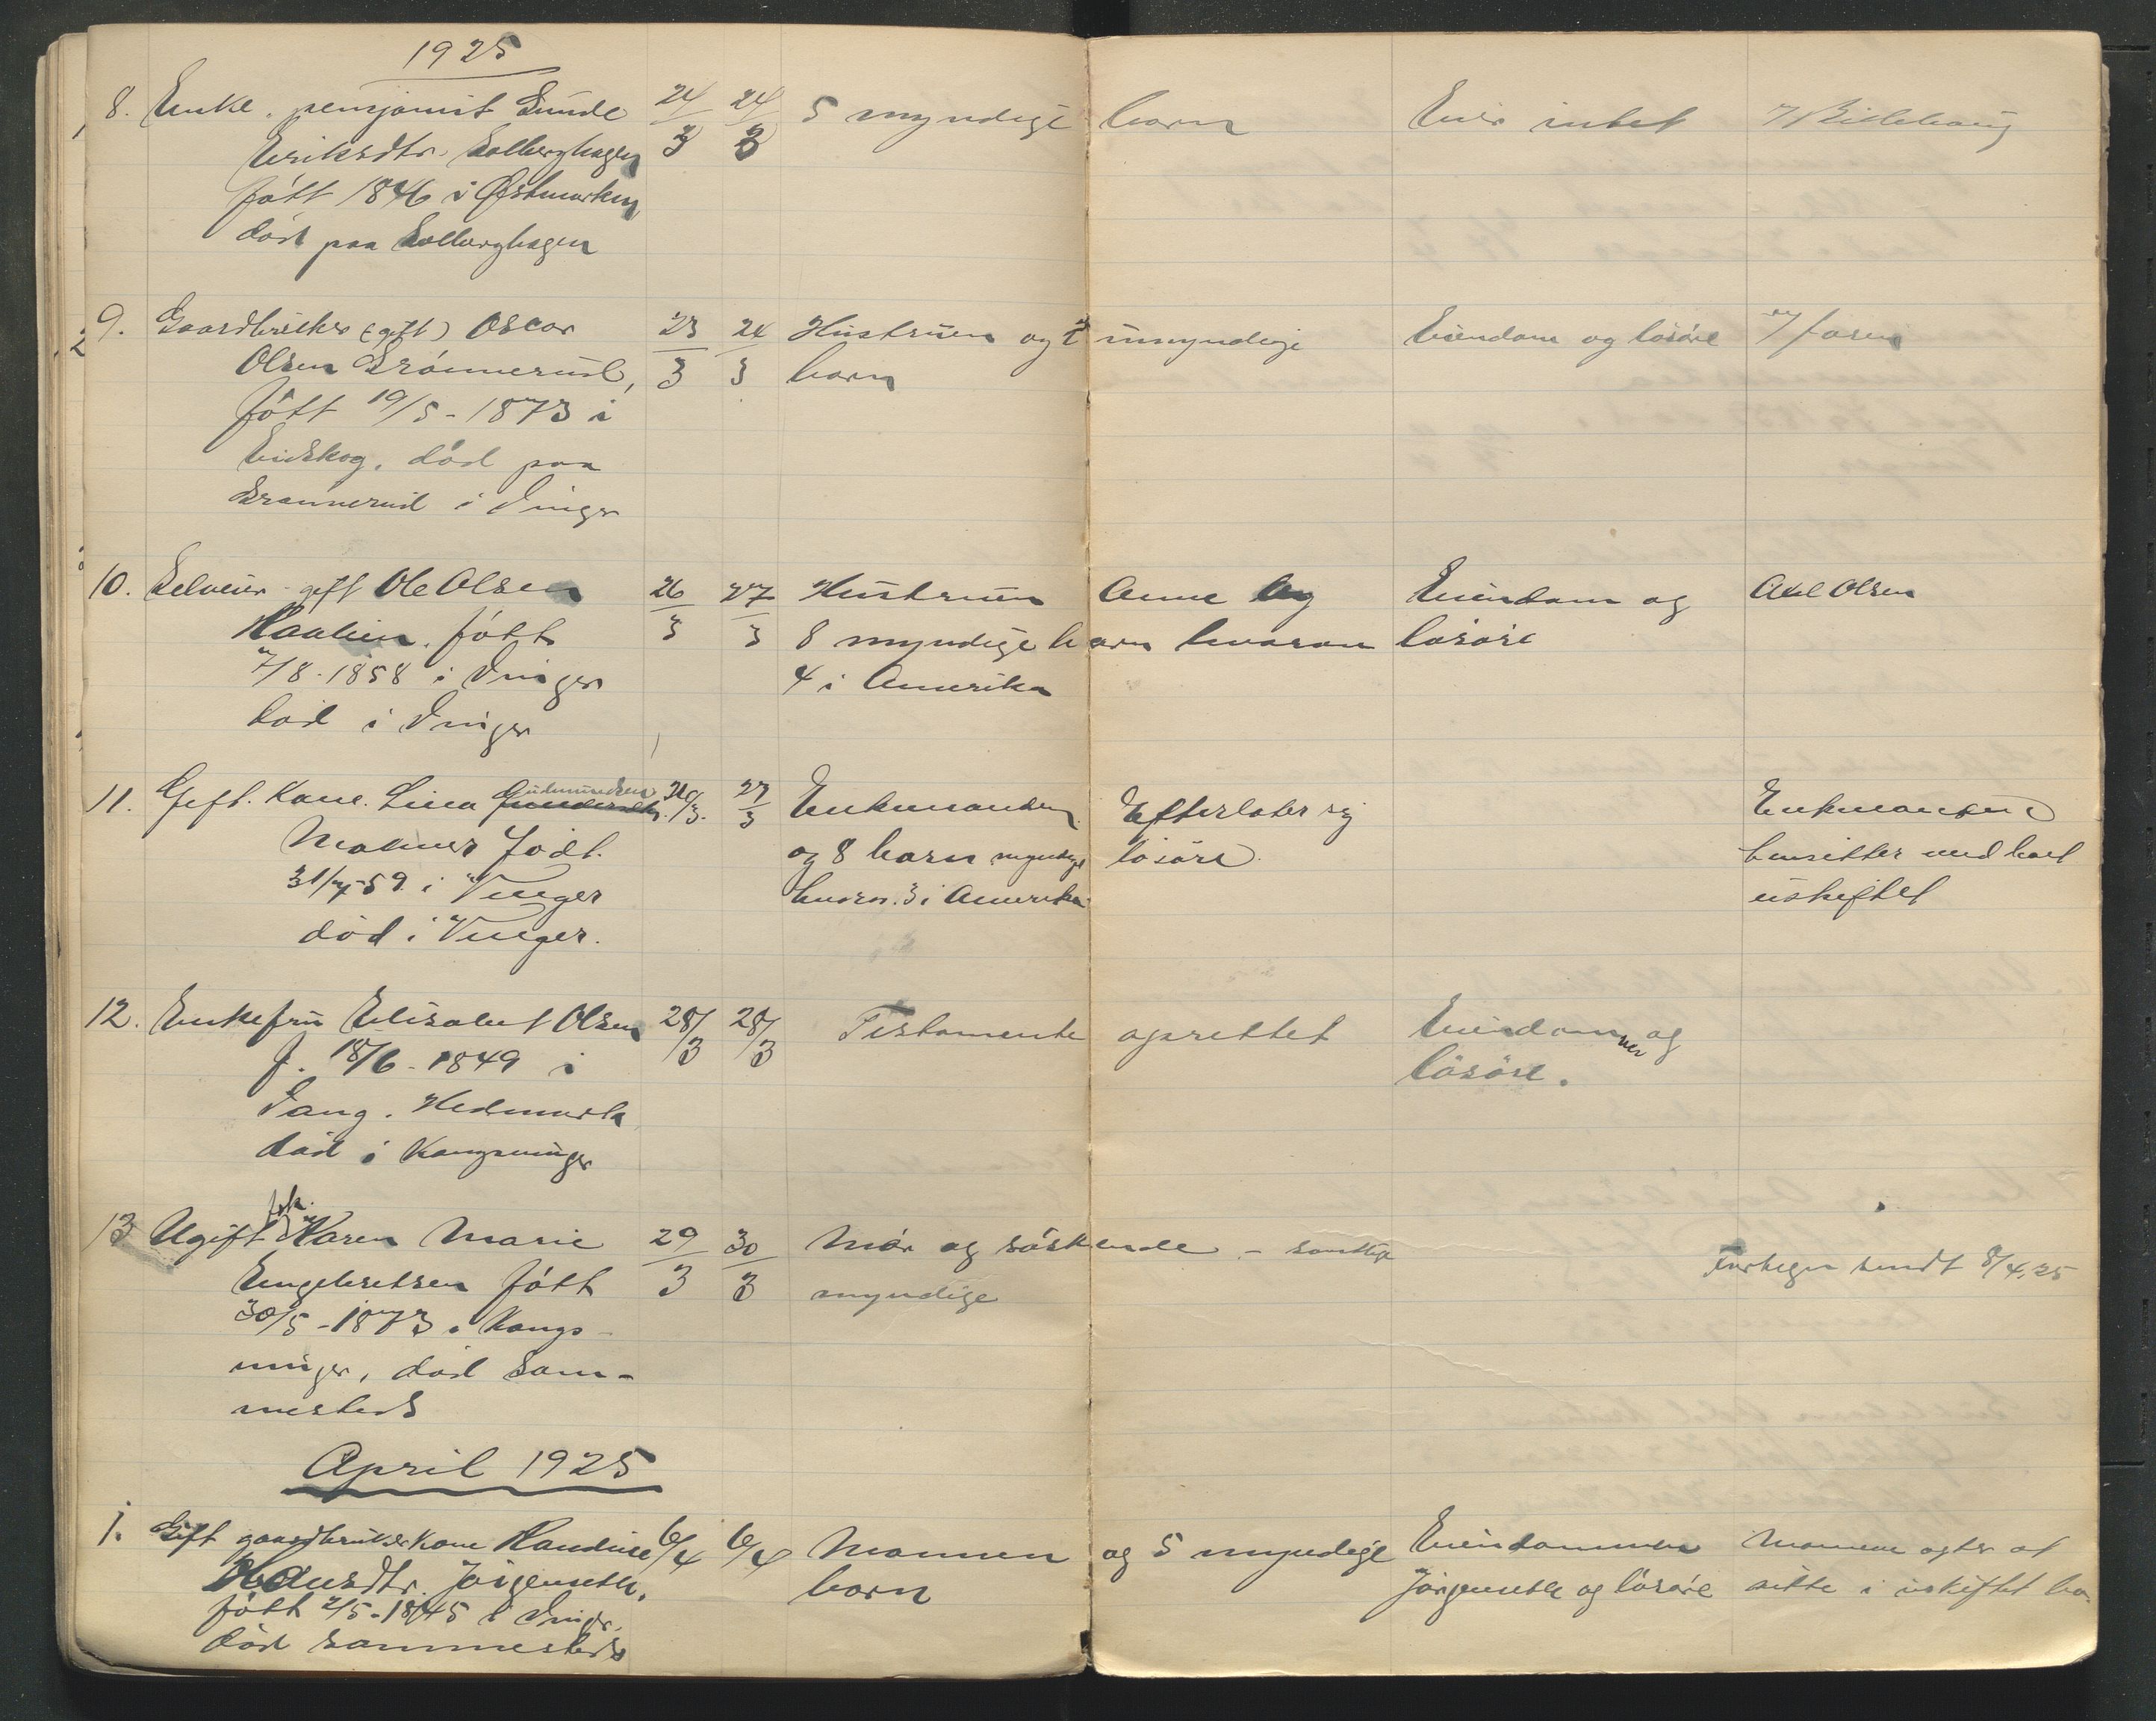 1925
8. Enke, pensjonist Gunde 24/3 24/3 5 myndige barn Eier intet
Eriksdtr. Solberghagen
født 1846 i Østmarken
død paa Solberghagen
9. Gaardbruker (gift) Oscar 23/3 24/3 Hustruen og umyndige Eiendom og løsøre
Olsen Grønnerud, barn
født 19/5 - 1873 i
Eidskog, død paa
Grønnerud i Vinger
10. Selveier gift Ole Olsen 26/3 27/3 Hustruen Anne og Eiendom og Axel Olsen
født 8 myndige barn hvorav løsøre
7/8 - 1858 i Vinger 4 i Amerika
død i Vinger
11. Gift. Kone. Lina Gudmundsen 26/3. 27/3 Enkemanden Efterlater sig Enkemanden
Momer født. og 8 barn myndige løsøre. hensitter med boet
31/7-59 i Vinger hvorav 3 i Amerika uskiftet
død i Vinger.
12. Enkefru Elisabet Olsen 28/3 28/3 Testamente oprettet Eiendommer og
f. 18/6 - 1849 i løsøre.
Vang. Hedmark
død i Kongsvinger
frk.
13 Ugift Karen Marie 29/3 30/3 Mor og søskende - samtlige
Engebretsen født myndige Fortegn sendt 8/4.25
30/5 - 1873 i Kongs-
vinger, død sam-
mesteds
April 1925
1. Gift gaardbrukerkone Randine 6/4 6/4 Mannen og 5 myndige Eiendommen Mannen agter at
Hansdtr. Jørgenseth, barn Jørgenseth og løsøre sitte i uskiftet bo
født 2/5 - 1845 i Vinger,
død sammesteds